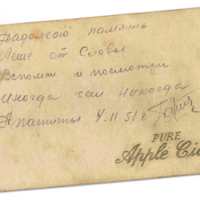 На долгую память
Лене от Славы
Вспомни и посмотри
иногда чем никогда
Апатиты 4.11.51г
PURE
Apple Ci